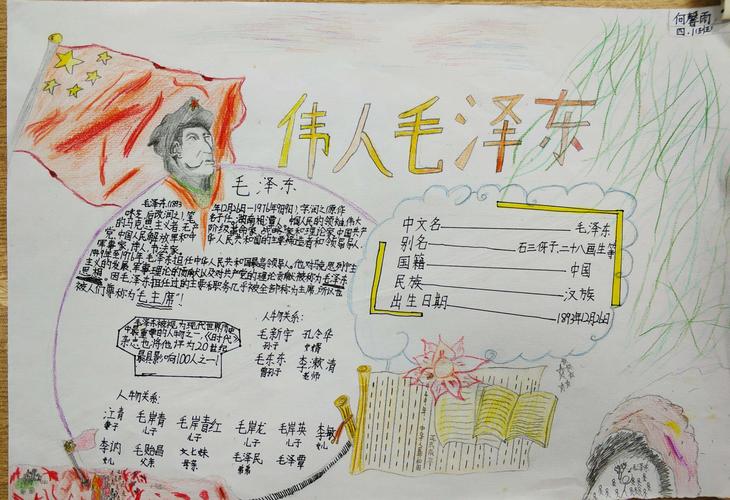 何馨雨
伟人毛泽东
毛泽东
中文名 毛泽东
别名 石三伢子、二十八画生等
国籍 中国
民族 汉族
出生日期 1893年12月26日
毛泽东(1893年12月26日-1976年9月9日),字润之(原作
咏芝,后改润芝),笔名子任。湖南湘潭人。中国人民的领袖,伟大
的马克思主义者,无产阶级革命家、战略家和理论家,中国共产
党、中国人民解放军和中华人民共和国的主要缔造者和领导人,
军事家,诗人,书法家。
1949年至1976年,毛泽东担任中华人民共和国最高领导人。他对马克思列宁
主义的发展、军事理论的贡献以及对共产党的理论贡献被称为毛泽东
思想。因毛泽东担任过的主要职务几乎被全部称为主席,所以也
被人们尊称为"毛主席"!
毛泽东被视为现代世界历史
中最重要的人物之一,《时代》
杂志也将他评为20世纪
最具影响100人之一!
人物关系:
毛新宇 孔令华
孙子
毛东东 李漱清
曾孙子 老师
人物关系:
江青 毛岸青 毛岸红 毛岸龙 毛岸英 李敏
妻子 儿子 儿子 儿子 女儿
李讷 毛贻昌 文七妹 毛泽民 毛泽覃
女儿 父亲 母亲 弟弟
毛泽东